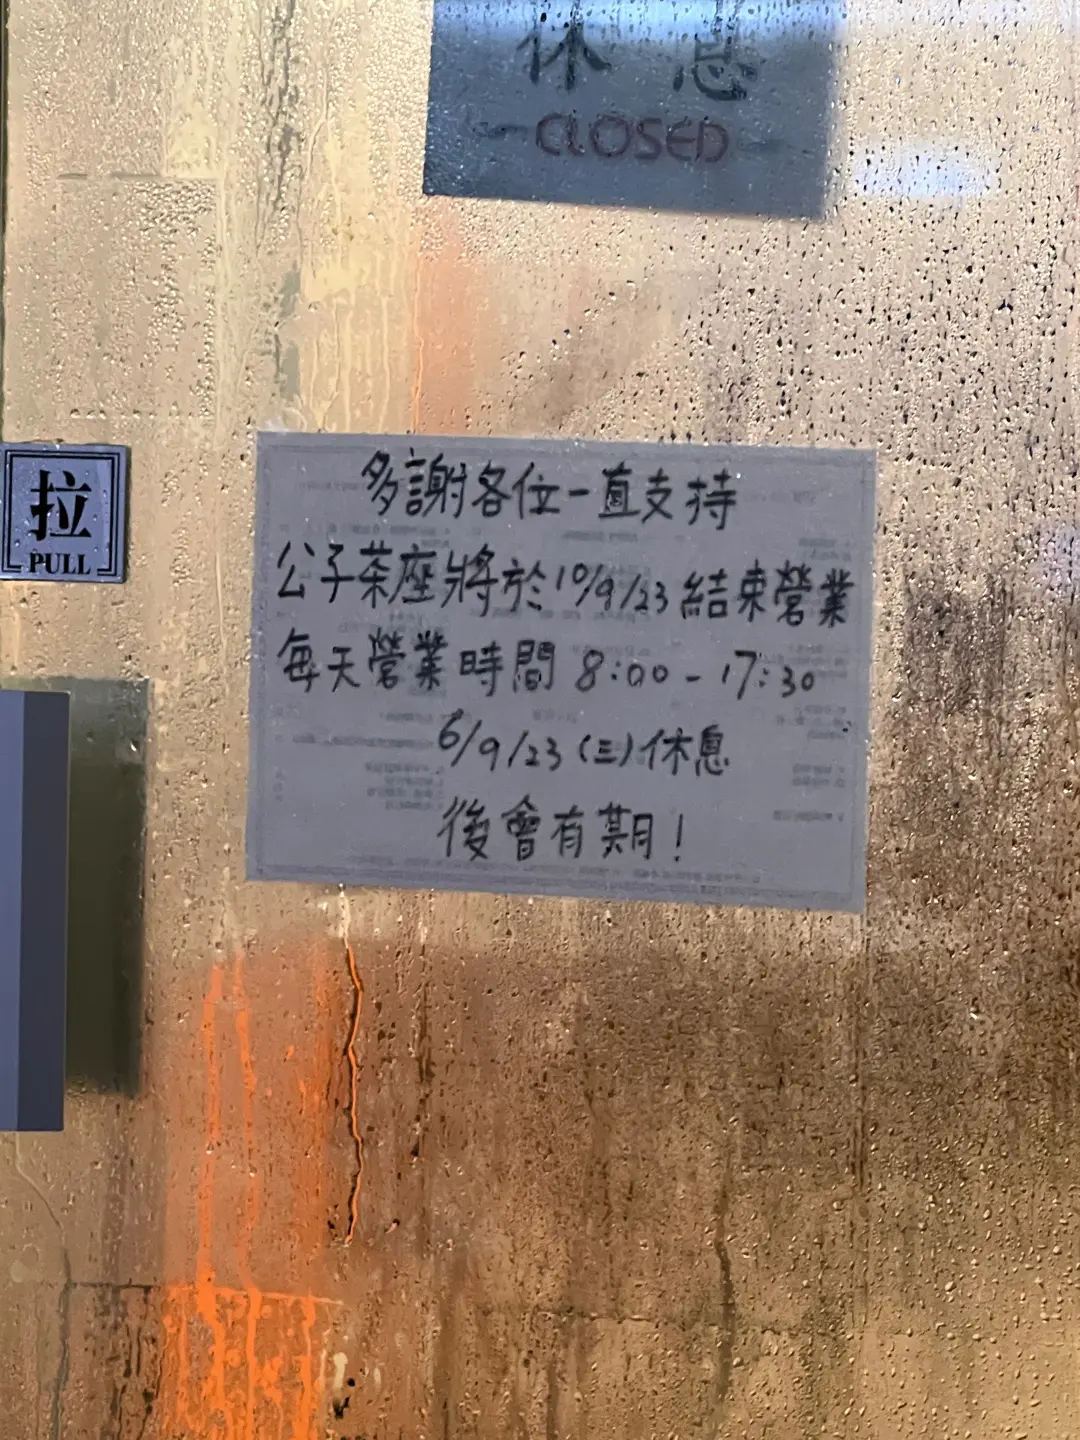 休息
CLOSED
多謝各位一直支持
公子茶座將於10/9/23結束營業
每天營業時間 8:00 - 17:30
6/9/23 (三) 休息
後會有期！
拉
PULL